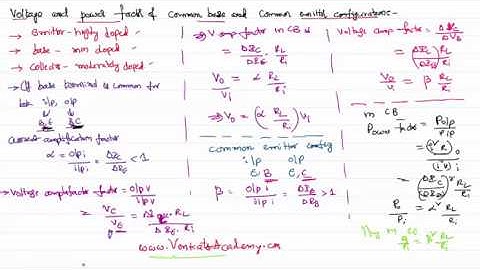 Voltage and power factr of common base and Common emitter configurations:-
→ Emitter - highly doped
→ base - min doped
→ Collector - moderately doped
→ If base terminal is common for
both i/p, o/p
B,E B,C
Current amplification factor
α = o/p i / i/p i = ΔIc / ΔIE < 1
→ Voltage ampltn factor = o/p v / i/p v
= Vc / VE = ΔIc × RL / ΔIE × Ri
→ V amp factor in CB is
= ΔIc / ΔIE · RL / Ri
Vo / Vi = α RL / Ri
→ Vo = (α RL / Ri) Vi
common emitter config
i/p o/p
E, B E, C
β = o/p i / i/p i = ΔIE / ΔIB > 1
www.VenkatsAcademy.cm
Voltage amp factor = ΔVc / ΔVB
= (ΔIc / ΔIB) RL / Ri
Vo / Vi = β RL / Ri
In CB
Power factor = P o/p / P i/p
= (i²R)o / (i²r)i
= (ΔIc)² / (ΔIE)² RL / Ri
Po / Pi = α² RL / Ri
lly in CE
Po / Pi = β² RL / Ri